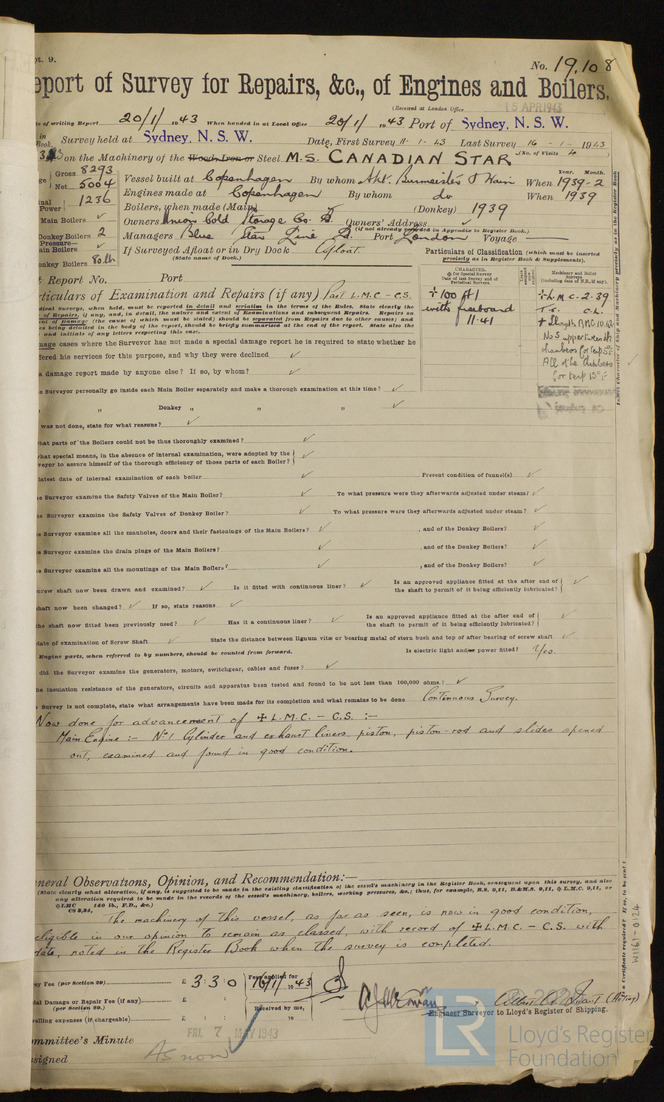 pt. 9.
No. 19,108
eport of Survey for Repairs, &c., of Engines and Boilers.
(Received at London Office 15 APR 1943
of writing Report 20/1/1943 When handed in at Local Office 20/1/1943 Port of Sydney, N. S. W.
Survey held at Sydney, N. S. W. Date, First Survey 11-1-43 Last Survey 16-1-1943
on the Machinery of the Wood, Iron or Steel M.S. CANADIAN STAR (No. of Visits 4
Gross 8293
Net 5004
Vessel built at Copenhagen By whom Akt. Burmeister & Wain When 1939-2
Year. Month.
1236
Engines made at Copenhagen By whom do When 1939
Power
Main Boilers ✓
Boilers, when made (Main) (Donkey) 1939
Donkey Boilers 2
Owners Union Cold Storage Co. Ld. Owners' Address
(if not already recorded in Appendix to Register Book.)
Managers Blue Star Line Ld. Port London Voyage
Pressure—
ain Boilers ✓
onkey Boilers 80 lb
If Surveyed Afloat or in Dry Dock Afloat.
(State name of Dock.)
Particulars of Classification (which must be inserted
precisely as in Register Book & Supplements).
t Report No. Port
CHARACTER.
+ 100 A1
with freeboard
11.41
+ L.M.C. 2.39
T.S. C.L.
+ Lloyds RMC 10.42
No 5 upper tween dk
chambers for temp 5°F
All other chambers
for temp 15°F
ticulars of Examination and Repairs (if any) Part L.M.C - C.S.
nage cases where the Surveyor has not made a special damage report he is required to state whether he
fered his services for this purpose, and why they were declined ✓
a damage report made by anyone else? If so, by whom? ✓
e Surveyor personally go inside each Main Boiler separately and make a thorough examination at this time? ✓
" Donkey " " " ✓
was not done, state for what reasons? ✓
hat parts of the Boilers could not be thoroughly examined? ✓
hat special means, in the absence of internal examination, were adopted by the
veyor to assure himself of the thorough efficiency of those parts of each Boiler? ✓
latest date of internal examination of each boiler ✓ Present condition of funnel(s) ✓
e Surveyor examine the Safety Valves of the Main Boiler? ✓ To what pressure were they afterwards adjusted under steam? ✓
e Surveyor examine the Safety Valves of Donkey Boiler? ✓ To what pressure were they afterwards adjusted under steam? ✓
e Surveyor examine all the manholes, doors and their fastenings of the Main Boilers? ✓ , and of the Donkey Boilers? ✓
e Surveyor examine the drain plugs of the Main Boilers? ✓ , and of the Donkey Boilers? ✓
e Surveyor examine all the mountings of the Main Boilers? ✓ , and of the Donkey Boilers? ✓
crew shaft now been drawn and examined? ✓ Is it fitted with continuous liner? ✓ Is an approved appliance fitted at the after end of
the shaft to permit of it being efficiently lubricated? ✓
haft now been changed? ✓ If so, state reasons ✓
the shaft now fitted been previously used? ✓ Has it a continuous liner? ✓ Is an approved appliance fitted at the after end of
the shaft to permit of it being efficiently lubricated? ✓
date of examination of Screw Shaft ✓ State the distance between lignum vitæ or bearing metal of stern bush and top of after bearing of screw shaft ✓
Engine parts, when referred to by numbers, should be counted from forward. Is electric light and/or power fitted? Yes.
did the Surveyor examine the generators, motors, switchgear, cables and fuses? ✓
he insulation resistance of the generators, circuits and apparatus been tested and found to be not less than 100,000 ohms? ✓
e Survey is not complete, state what arrangements have been made for its completion and what remains to be done Continuous Survey.
Now done for advancement of ✠ L.M.C. - C.S. :-
Main Engine :- No 1 Cylinder and exhaust liners, piston, piston-rod and slides opened
out, examined and found in good condition.
neral Observations, Opinion, and Recommendation:—
(State clearly what alteration, if any, is suggested to be made in the existing classification of the vessel's machinery in the Register Book, consequent upon this survey, and also
any alteration required to be made in the records of the vessel's machinery, boilers, working pressures, &c.; thus, for example, B.S. 9,11, B.&M.S. 9,11, ✠ L.M.C. 9,11, or
The machinery of this vessel, as far as seen, is now in good condition,
eligible in our opinion to remain as classed, with record of ✠ L.M.C. - C.S. with
date, noted in the Register Book when the survey is completed.
ey Fee (per Section 29) £ 3:3:0 Fees applied for 16/1/1943
ial Damage or Repair Fee (if any) £ : :
(per Section 29.)
velling expenses (if chargeable) £ : : Received by me,
Engineer Surveyor to Lloyd's Register of Shipping.
ommittee's Minute FRI. 7 MAY 1943
ssigned As now
W1161-0124
LR
Lloyd's Register
Foundation